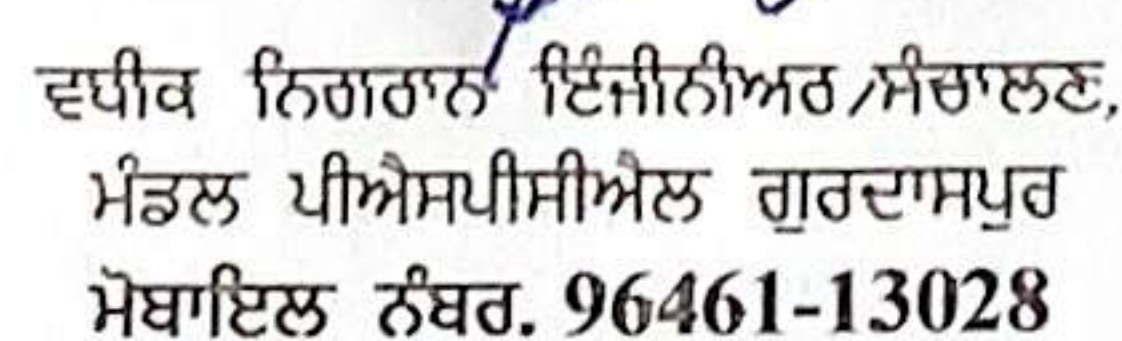 ਵਧੀਕ ਨਿਗਰਾਨ ਇੰਜੀਨੀਅਰ/ਸੰਚਾਲਣ,
ਮੰਡਲ ਪੀਐਸਪੀਸੀਐਲ ਗੁਰਦਾਸਪੁਰ
ਮੋਬਾਇਲ ਨੰਬਰ. 96461-13028